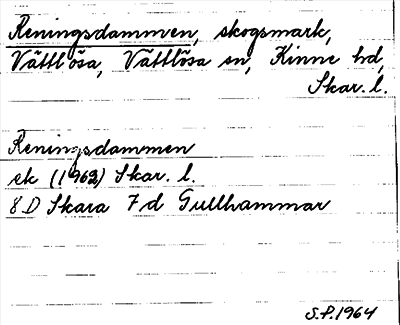 Reningsdammen, skogsmark,
Vättlösa, Vättlösa sn, Kinne hd,
Skar. l.
Reningsdammen
ek (1962) Skar. l.
8D Skara 7d Gullhammar
S.P. 1964